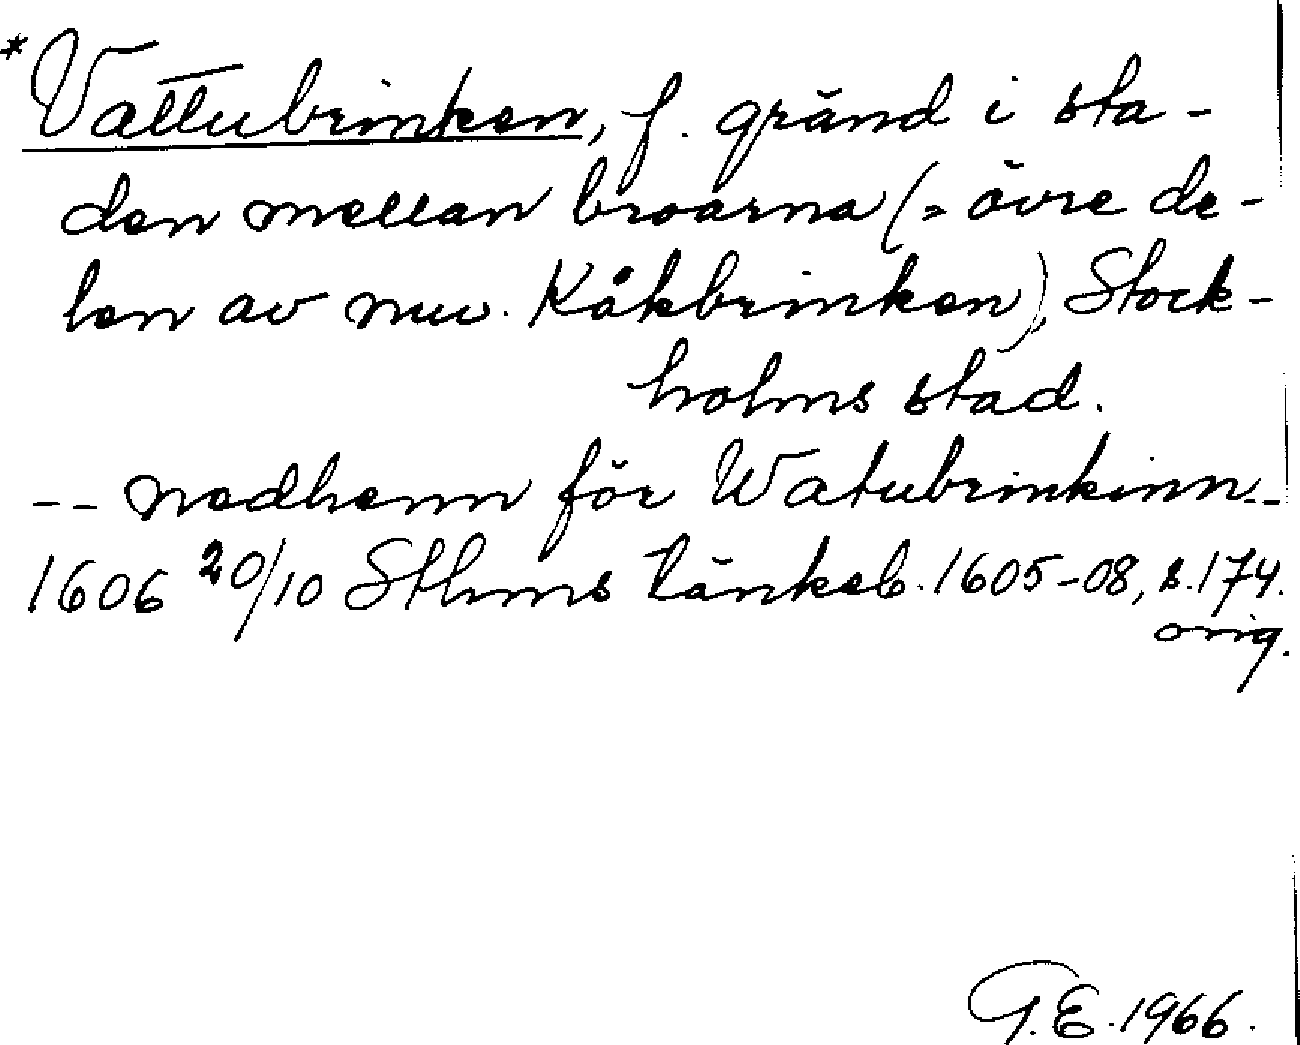 *Vattubrinken, f. gränd i sta-
den mellan broarna (= övre de-
len av nuv. Kåkbrinken), Stock-
holms stad.
-- nedhenn för Watubrinkinn --
1606 20/10 Sthms tänkeb. 1605-08, s. 174.
orig.
G.E. 1966.